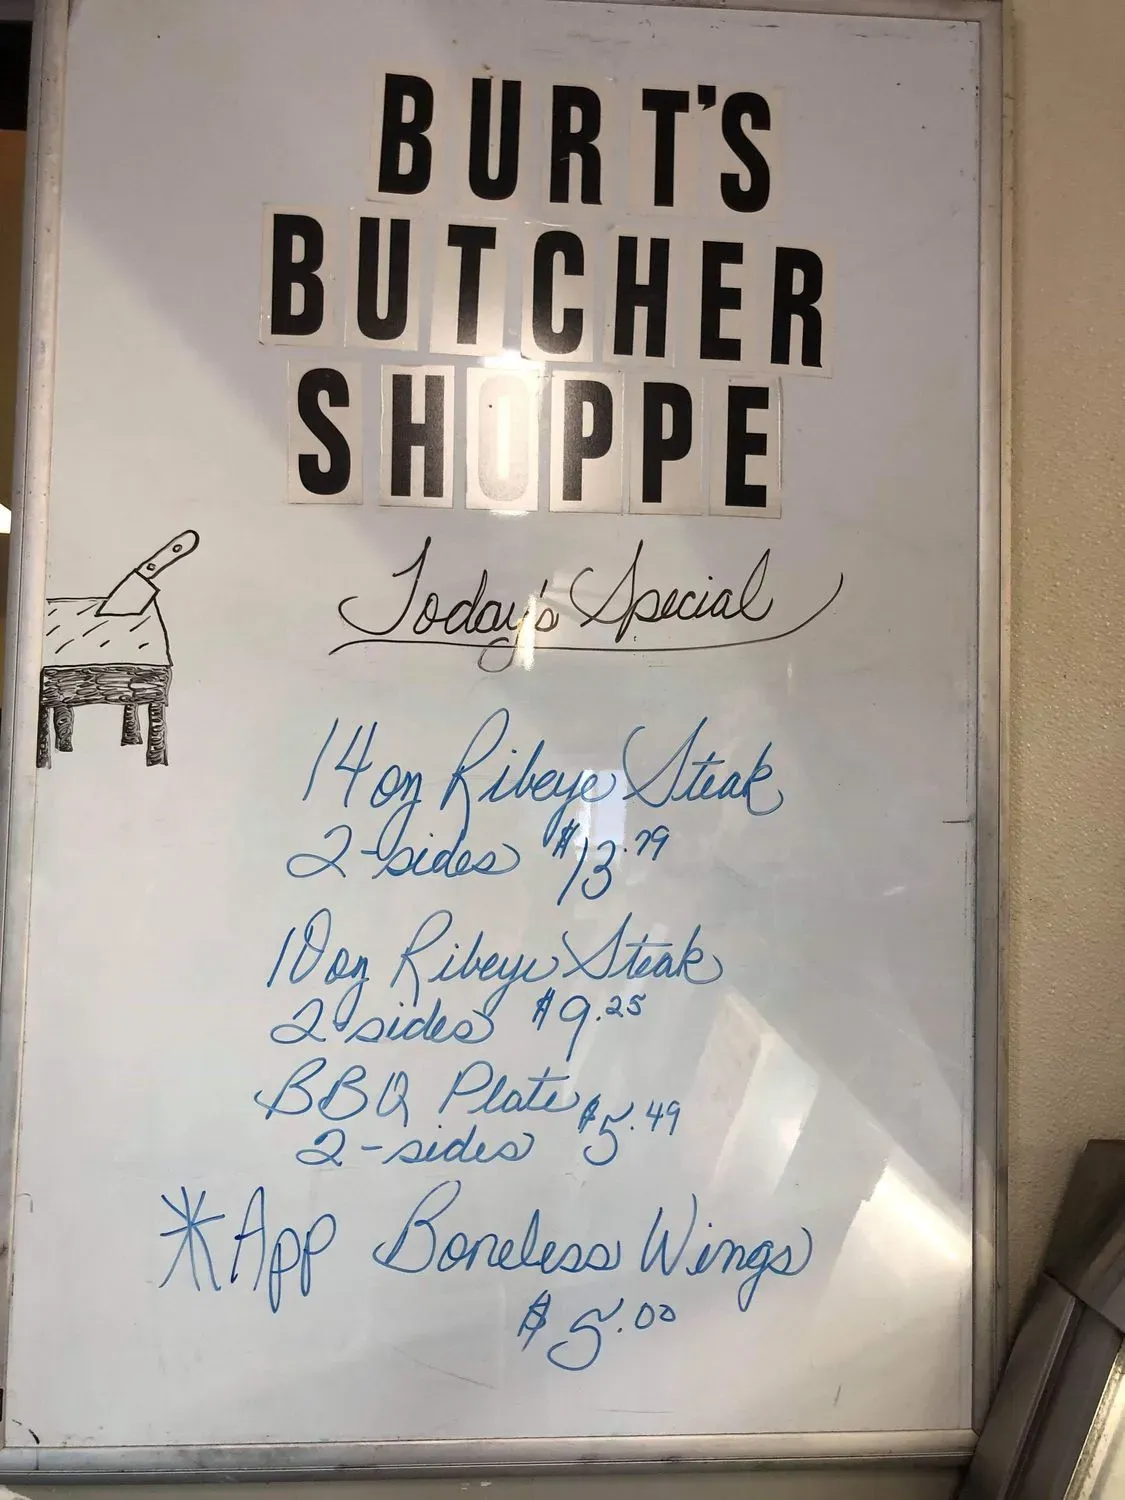 BURT'S
BUTCHER
SHOPPE
Today's Special
14oz Ribeye Steak
2-sides $13.79
10oz Ribeye Steak
2 sides $9.25
BBQ Plate $5.49
2-sides
*App Boneless Wings
$5.00